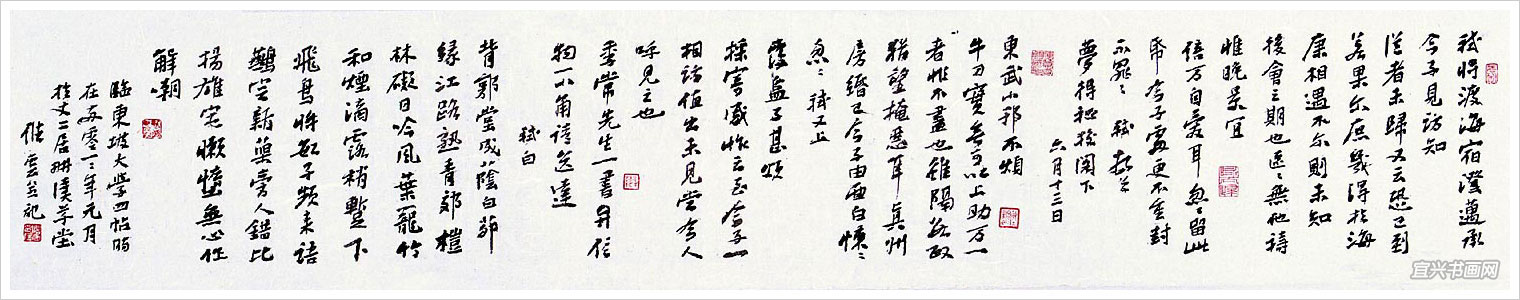 軾將渡海宿澄邁承
令子見訪知
從者未歸又云恐已到
若果尔庶幾得於海
康相遇不尔則未知
後會之期也區〻無他禱
惟晚景宜
倍万自愛耳忽〻留此
帋令子處更不重封
不罪〻 軾頓首
夢得秘校閣下
六月十三日
東武小邦不煩
牛刀實無可以上助万一
者非不盡也雖隔數政
猶望掩惡耳真州
房緡已令子由面白悚〻
忽〻 軾又上
覆盆子甚煩
採寄感怍之至令子一
相訪值出未見當令人
呼見之也
季常先生一書并信
物一小角請送達
軾白
背郭堂成蔭白茆
緣江路熟青郊榿
林礙日吟風葉籠竹
和煙滴露梢暫下
飛烏將數子頻來語
鷰定新巢旁人錯比
揚雄宅懶惰無心作
解嘲
臨東坡大學四帖時
年元月
於丈二居
雲翁記
宜兴书画网